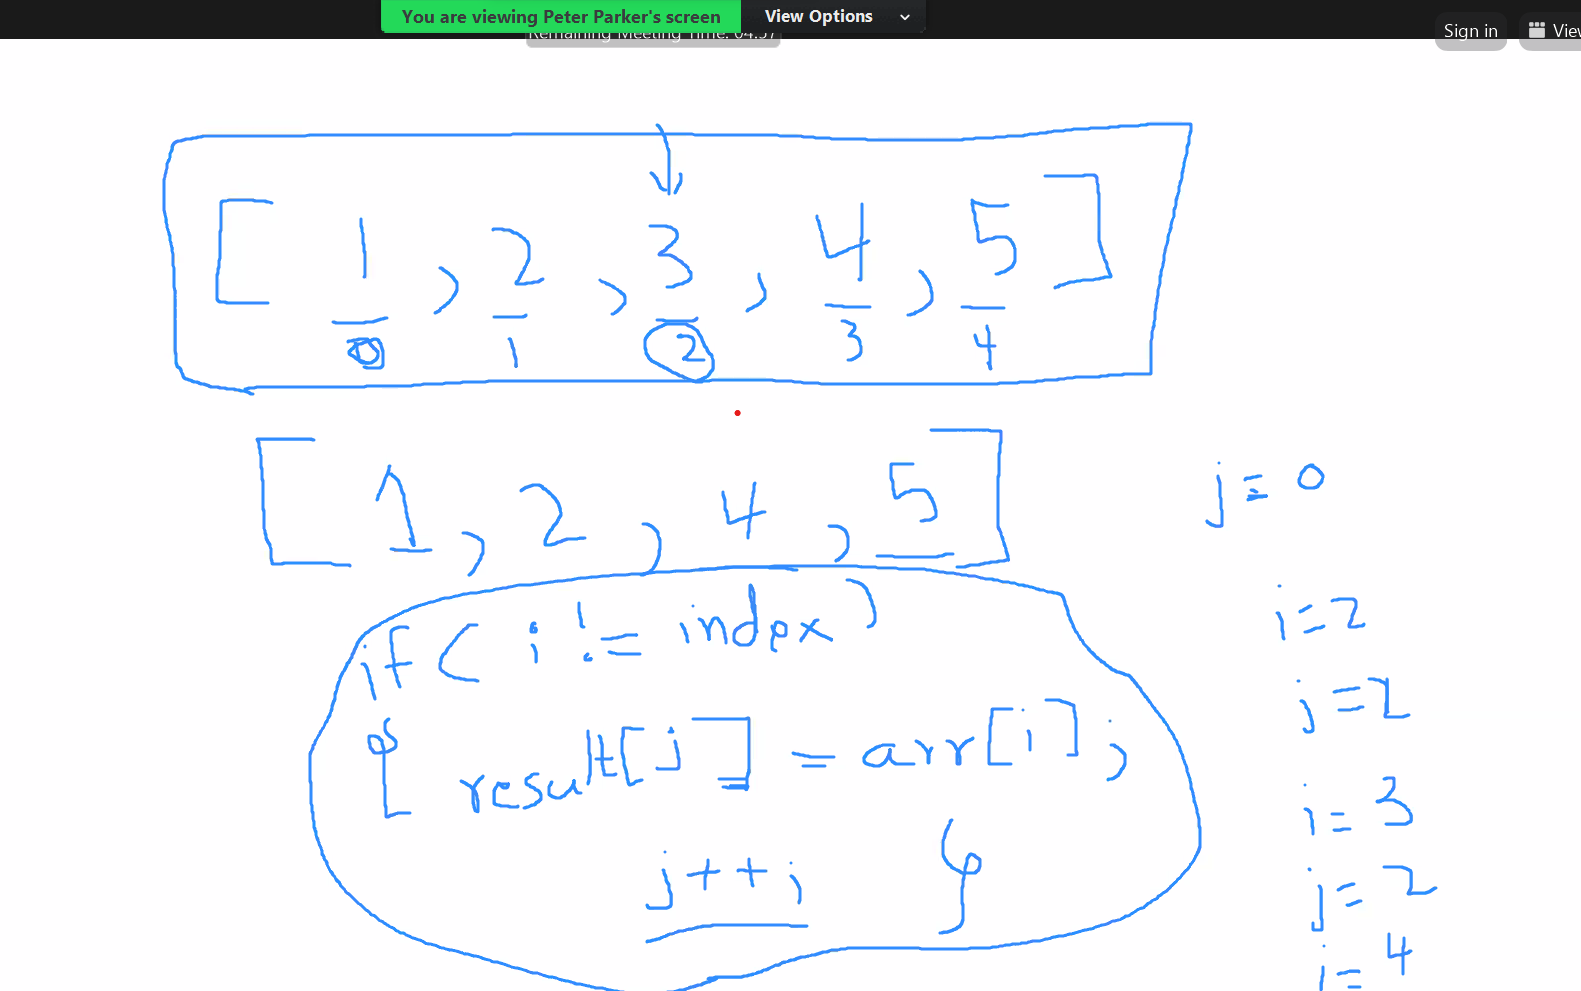 You are viewing Peter Parker's screen View Options
Remaining Meeting Time: 04:37
Sign in View
[ 1 , 2 , 3 , 4 , 5 ]
0 1 2 3 4
[ 1 , 2 , 4 , 5 ]
j = 0
if ( i != index )
{ result[j] = arr[i];
j++; }
i = 2
j = 2
i = 3
j = 2
i = 4